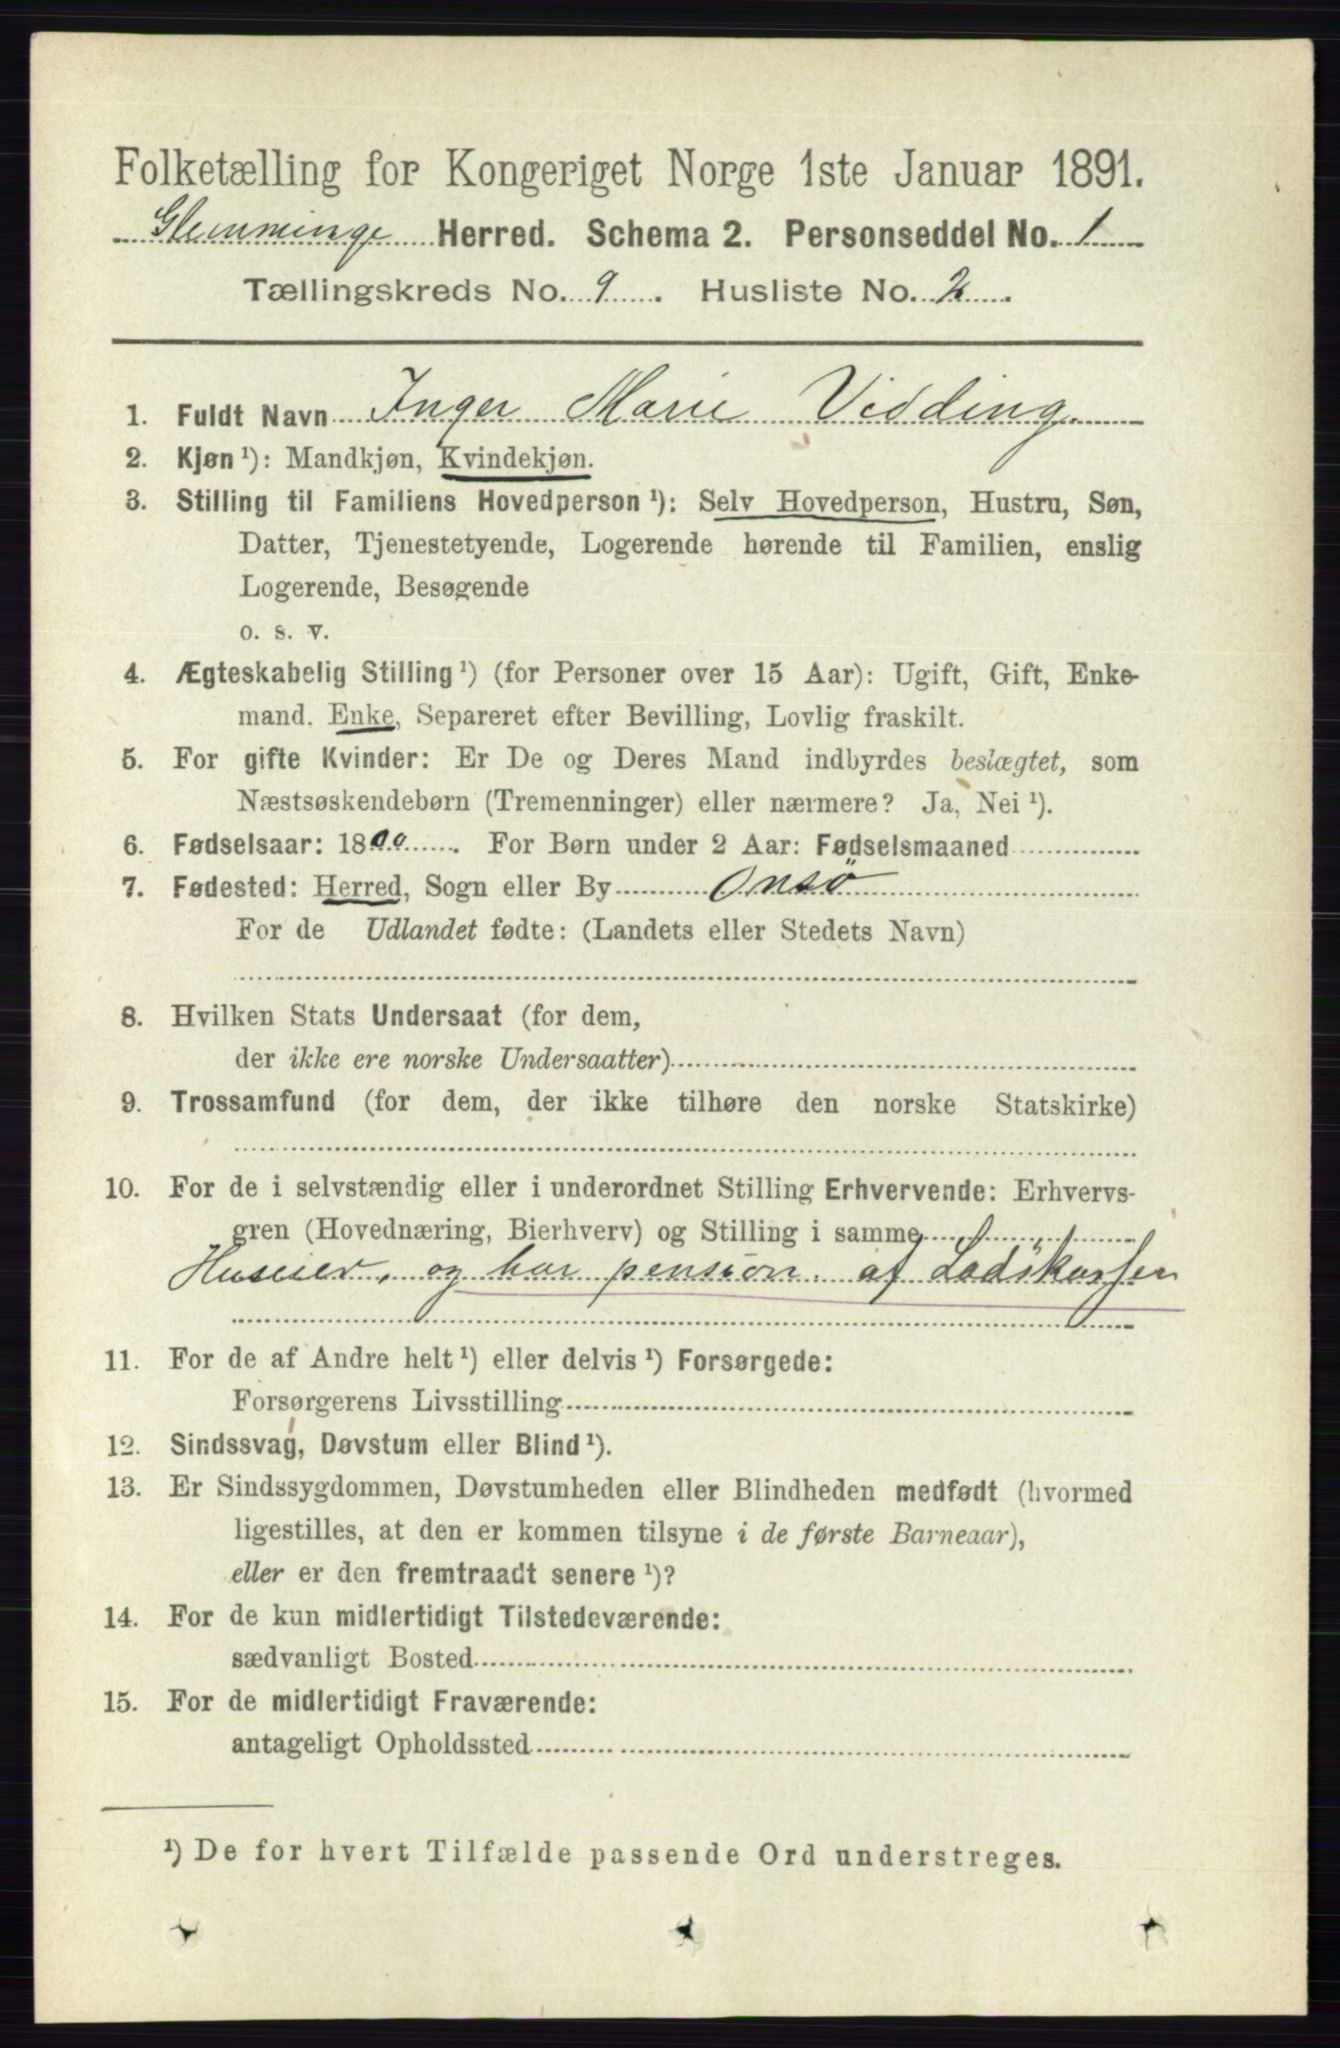 Folketælling for Kongeriget Norge 1ste Januar 1891.
Glemminge Herred. Schema 2. Personseddel No. 1
Tællingskreds No. 9. Husliste No. 2.
1. Fuldt Navn Inger Marie Vidding.
2. Kjøn ¹): Mandkjøn, Kvindekjøn.
3. Stilling til Familiens Hovedperson ¹): Selv Hovedperson, Hustru, Søn,
Datter, Tjenestetyende, Logerende hørende til Familien, enslig
Logerende, Besøgende
o. s. v.
4. Ægteskabelig Stilling ¹) (for Personer over 15 Aar): Ugift, Gift, Enke-
mand. Enke, Separeret efter Bevilling, Lovlig fraskilt.
5. For gifte Kvinder: Er De og Deres Mand indbyrdes beslægtet, som
Næstsøskendebørn (Tremenninger) eller nærmere? Ja, Nei ¹).
6. Fødselsaar: 1800. For Børn under 2 Aar: Fødselsmaaned
7. Fødested: Herred, Sogn eller By Onsö
For de Udlandet fødte: (Landets eller Stedets Navn)
8. Hvilken Stats Undersaat (for dem,
der ikke ere norske Undersaatter)
9. Trossamfund (for dem, der ikke tilhøre den norske Statskirke)
10. For de i selvstændig eller i underordnet Stilling Erhvervende: Erhvervs-
gren (Hovednæring, Bierhverv) og Stilling i samme
Huseier, og har pension af Lodskassen
11. For de af Andre helt ¹) eller delvis ¹) Forsørgede:
Forsørgerens Livsstilling
12. Sindssvag, Døvstum eller Blind ¹).
13. Er Sindssygdommen, Døvstumheden eller Blindheden medfødt (hvormed
ligestilles, at den er kommen tilsyne i de første Barneaar),
eller er den fremtraadt senere ¹)?
14. For de kun midlertidigt Tilstedeværende:
sædvanligt Bosted
15. For de midlertidigt Fraværende:
antageligt Opholdssted
¹) De for hvert Tilfælde passende Ord understreges.